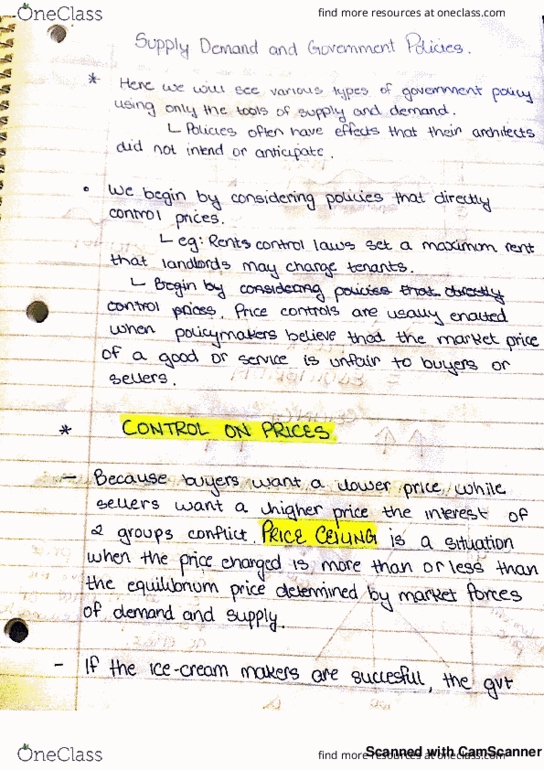 OneClass
find more resources at oneclass.com
Supply Demand and Government Policies.
* Here we will see various types of government policy
using only the tools of supply and demand.
↳ Policies often have effects that their architects
did not intend or anticipate.
• We begin by considering policies that directly
control prices.
↳ eg: Rents control laws set a maximum rent
that landlords may charge tenants.
↳ Begin by considering policies that directly
control prices. Price controls are usually enalted
when policymakers believe that the market price
of a good or service is unfair to buyers or
sellers.
* CONTROL ON PRICES
- Because buyers want a lower price while
sellers want a higher price the interest of
2 groups conflict. PRICE CEILING is a situation
when the price charged is more than or less than
the equilibrium price determined by market forces
of demand and supply.
- If the ice-cream makers are succesful, the gvt
OneClass
find more resources at oneclass.com
Scanned with CamScanner